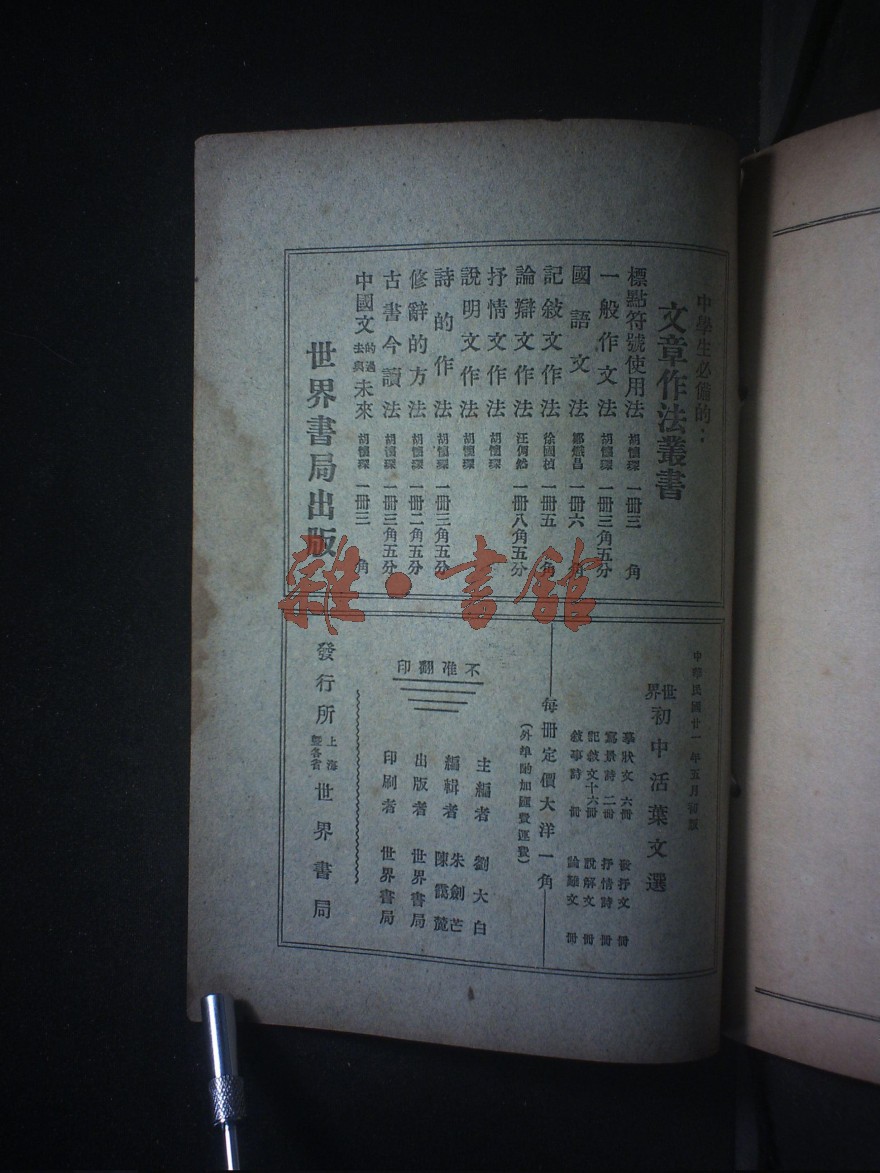 中學生必備的：
文章作法叢書
標點符號使用法 胡懷琛 一冊三角
一般作文法 胡懷琛 一冊三角五分
國語文法 鄒熾昌 一冊六角
記敍文作法 徐國楨 一冊五角
論辯文作法 汪倜然 一冊八角五分
抒情文作法 胡懷琛
說明文作法 胡懷琛
詩的作法 胡懷琛 一冊三角五分
修辭的方法 胡懷琛 一冊二角五分
古書今讀法 胡懷琛 一冊三角五分
中國文的過去與未來 胡懷琛 一冊三角
世界書局出版
雜·書館
中華民國廿一年五月初版
世界初中活葉文選
事狀文 六冊 發抒文 冊
寫景詩 二冊 抒情詩 冊
記敍文十六冊 說解文 冊
敍事詩 冊 論難文 冊
每冊定價大洋一角
（外埠酌加匯費運費）
不准翻印
主編者 劉大白
編輯者 朱劍芒 陳靄麓
出版者 世界書局
印刷者 世界書局
發行所 上海暨各省 世界書局